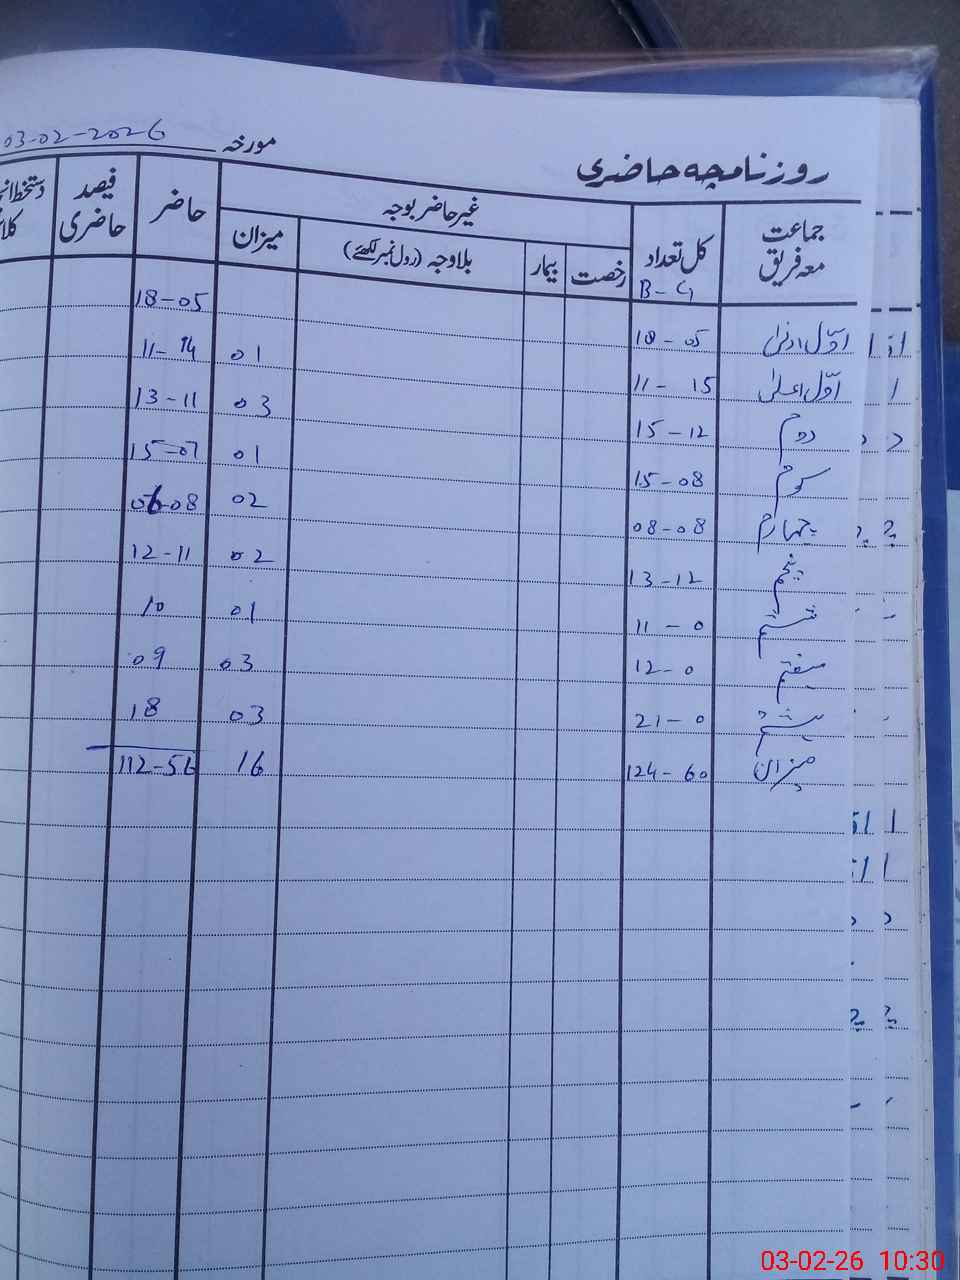 مورخہ 03-02-2026
روزنامچہ حاضری
جماعت معہ فریق | کل تعداد B-G | غیر حاضر بوجہ | رخصت | بیمار | بلاوجہ (رول نمبر لکھئے) | میزان | حاضر | فیصد حاضری
اوّل ادنیٰ | 18-05 | 18-05
اوّل اعلیٰ | 11-15 | 01 | 11-14
دوم | 15-12 | 03 | 13-11
سوم | 15-08 | 01 | 15-07
چہارم | 08-08 | 02 | 06-08
پنجم | 13-12 | 02 | 12-11
ششم | 11-0 | 01 | 10
ہفتم | 12-0 | 03 | 09
ہشتم | 21-0 | 03 | 18
میزان | 124-60 | 16 | 112-56
03-02-26 10:30